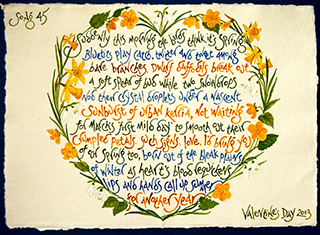 Song 45
Suddenly this morning the birds think it's Spring.
Bluetits play catch, twitter and tweet among
bare branches. Dwarf daffodils break out
a soft spread of buds while two snowdrops
nod their crystal droplets under a nascent
sunburst of urban kerria, not waiting
for March's first mild day to smooth out their
crumpled petals. Such signs, love, I'd bring you
of our Spring too, born out of the bleak plains
of winter as heart's blood requickens
lips and hands call up summer
for another year.
Valentine's Day 2013